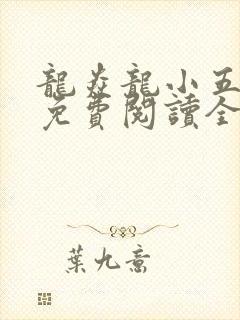 龍焱龍小五
免費閱讀全
葉九喬